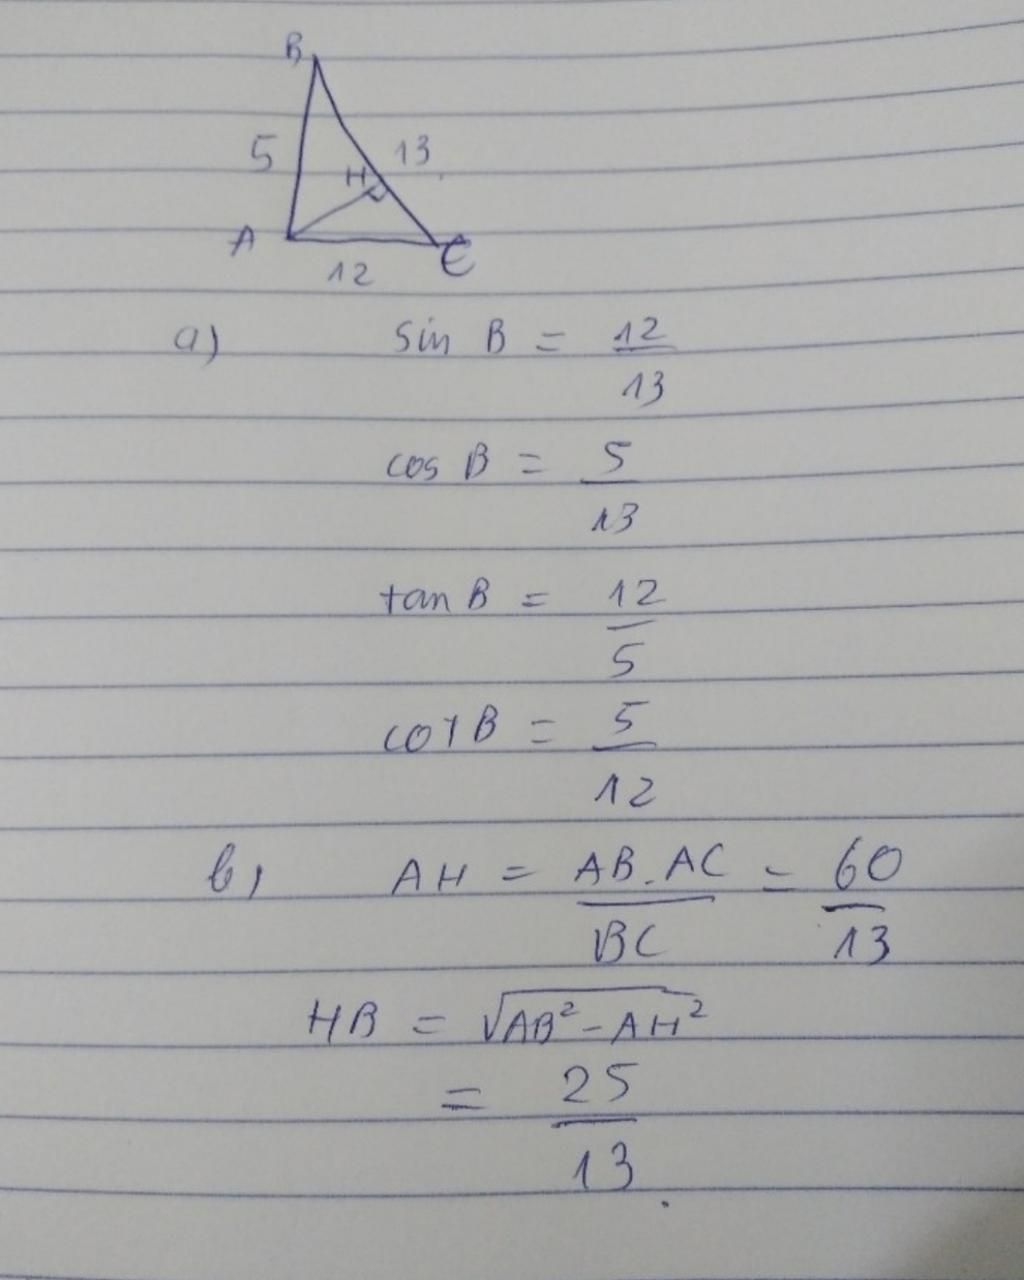 B
5
13
H
A
C
12
a) sin B = 12/13
cos B = 5/13
tan B = 12/5
cot B = 5/12
b, AH = AB.AC/BC = 60/13
HB = √AB² - AH²
= 25/13